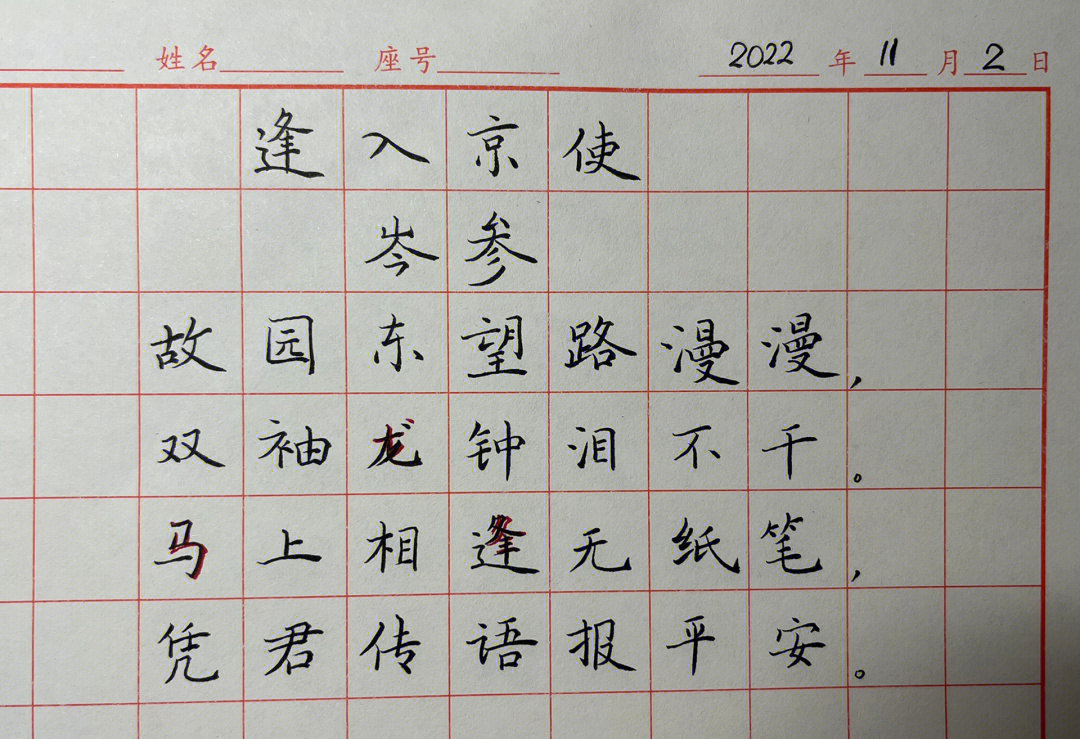 姓名 座号 2022年11月2日
逢入京使
岑参
故园东望路漫漫，
双袖龙钟泪不干。
马上相逢无纸笔，
凭君传语报平安。